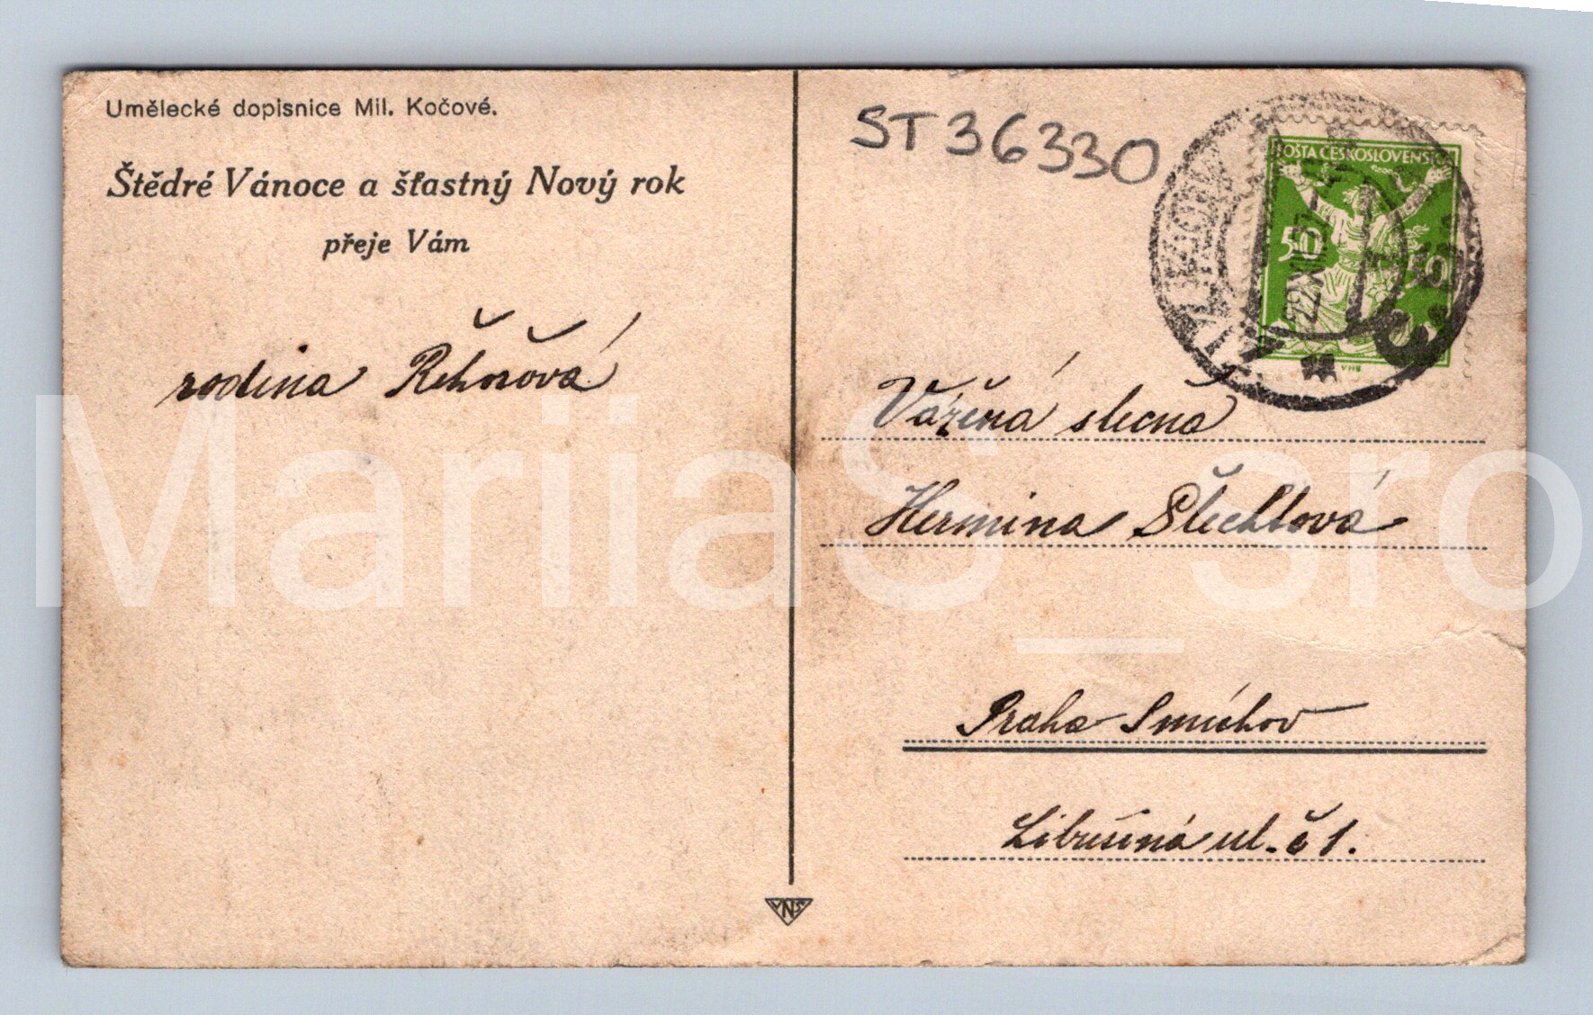 Umělecké dopisnice Mil. Kočové.
Štědré Vánoce a šťastný Nový rok
přeje Vám
rodina Řehořová
VNS
ST 36330
POŠTA ČESKOSLOVENSKÁ
50 50
VHB
22 XII 27
Vážená slečna
Hermina Šlechtová
Praha Smíchov
Libušina ul. č 1.
MariiaS_sro